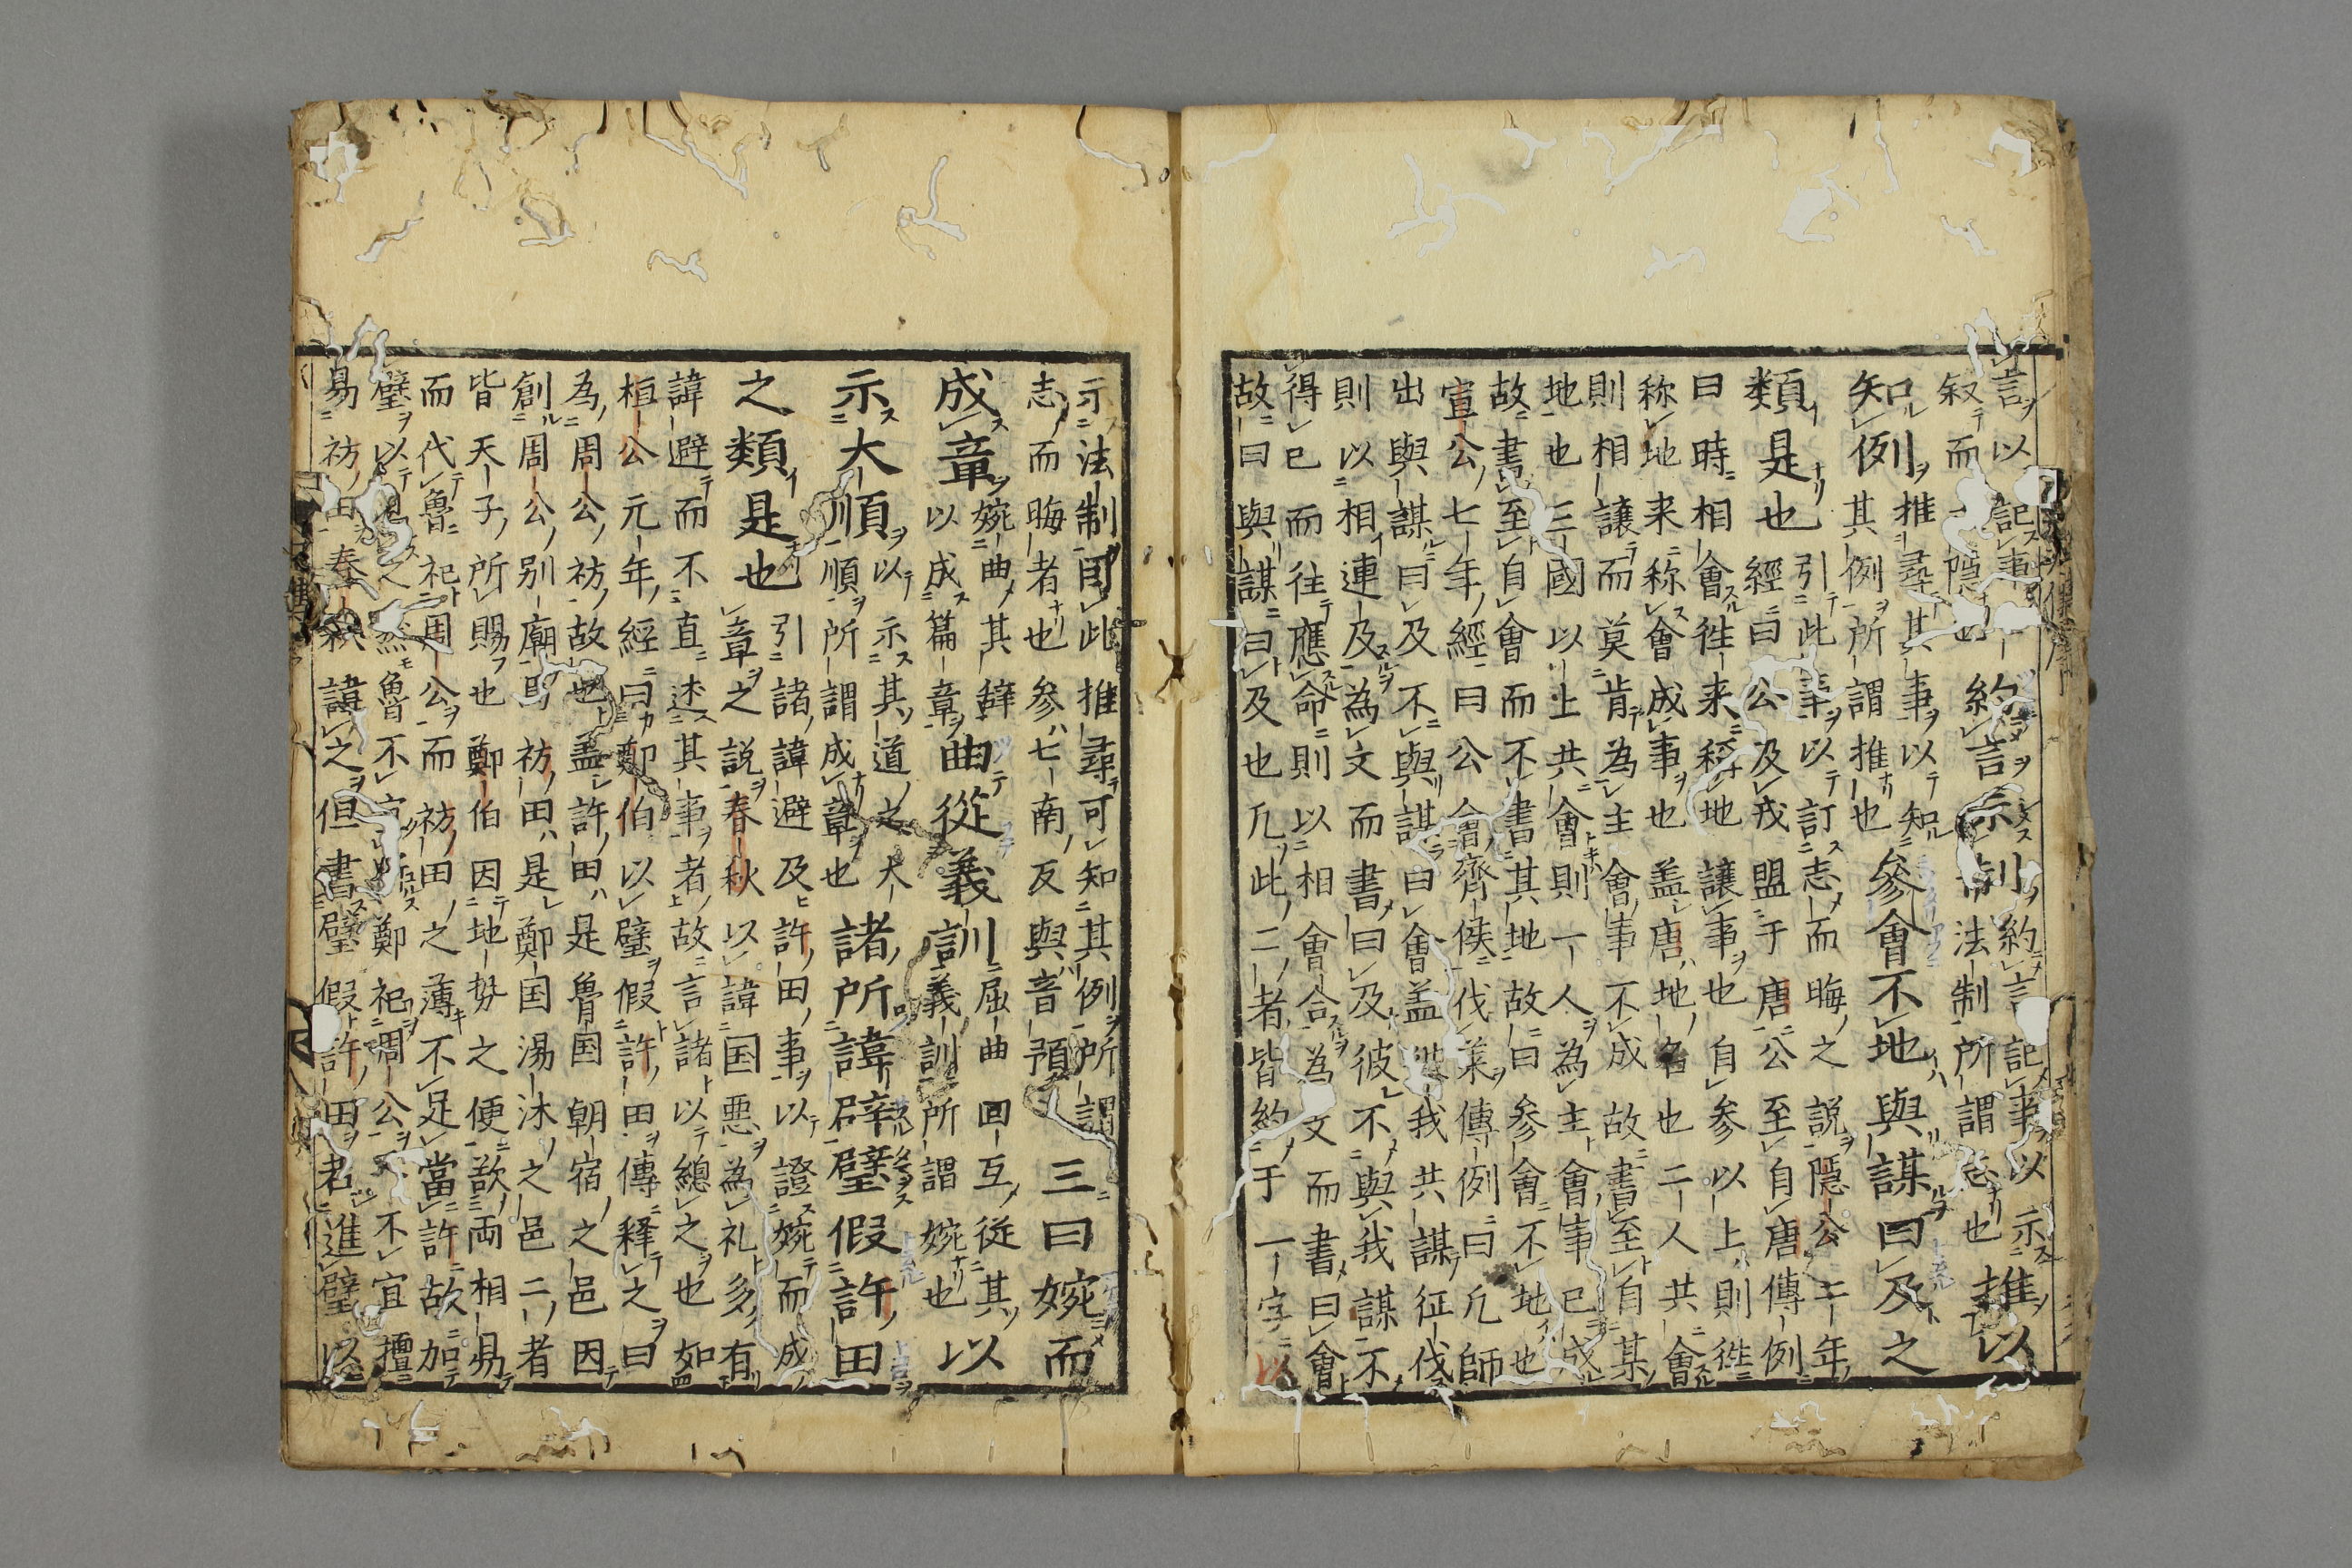 言以記事約言示制約言記事以示推以
叙而隱也 法制所謂志也
知例推尋其事以知參會不地與謀曰及之
其例所謂推也
類是也引此事以訂志而晦之説隱公二年
經曰公及戎盟于唐公至自唐傳例
曰時相會徃来称地讓事也自参以上則徃
称地来称會成事也盖唐地名也二人共會
則相讓而莫肯為主會事不成故書至自某
地也三國以上共會則一人為主會事已成
故書至自會而不書其地故曰參會不地也
宣公七年經曰公會齊侯伐莱傳例曰凡師
出與謀曰及不與謀曰會盖彼我共謀征伐
則以相連及為文而書曰及彼不與我謀不
得已而往應命則以相會合為文而書曰會
故曰與謀曰及也凡此二者皆約于一字以
示法制耳此推尋可知其例所謂三曰婉而
志而晦者也參七南反與音預
成章婉曲其辭曲從義訓屈曲回互從其以
以成篇章義訓所謂婉也
示大順以示其道之大諸所諱辟璧假許田
順所謂成章也
之類是也引諸諱避及許田事以證婉而成
章之説春秋以諱国惡為礼多有
諱避而不直述其事者故言諸以總之也如
桓公元年經曰鄭伯以璧假許田傳釋之曰
為周公祊故也盖許田是魯国朝宿之邑因
創周公別廟焉祊田是鄭国湯沐之邑二者
皆天子所賜也鄭伯因地勢之便欲両相易
而代魯祀周公而祊田之薄不足當許故加
璧以 之然魯不宜 鄭祀周公又不宜擅
易祊田春秋諱之但書璧假許田者進璧以